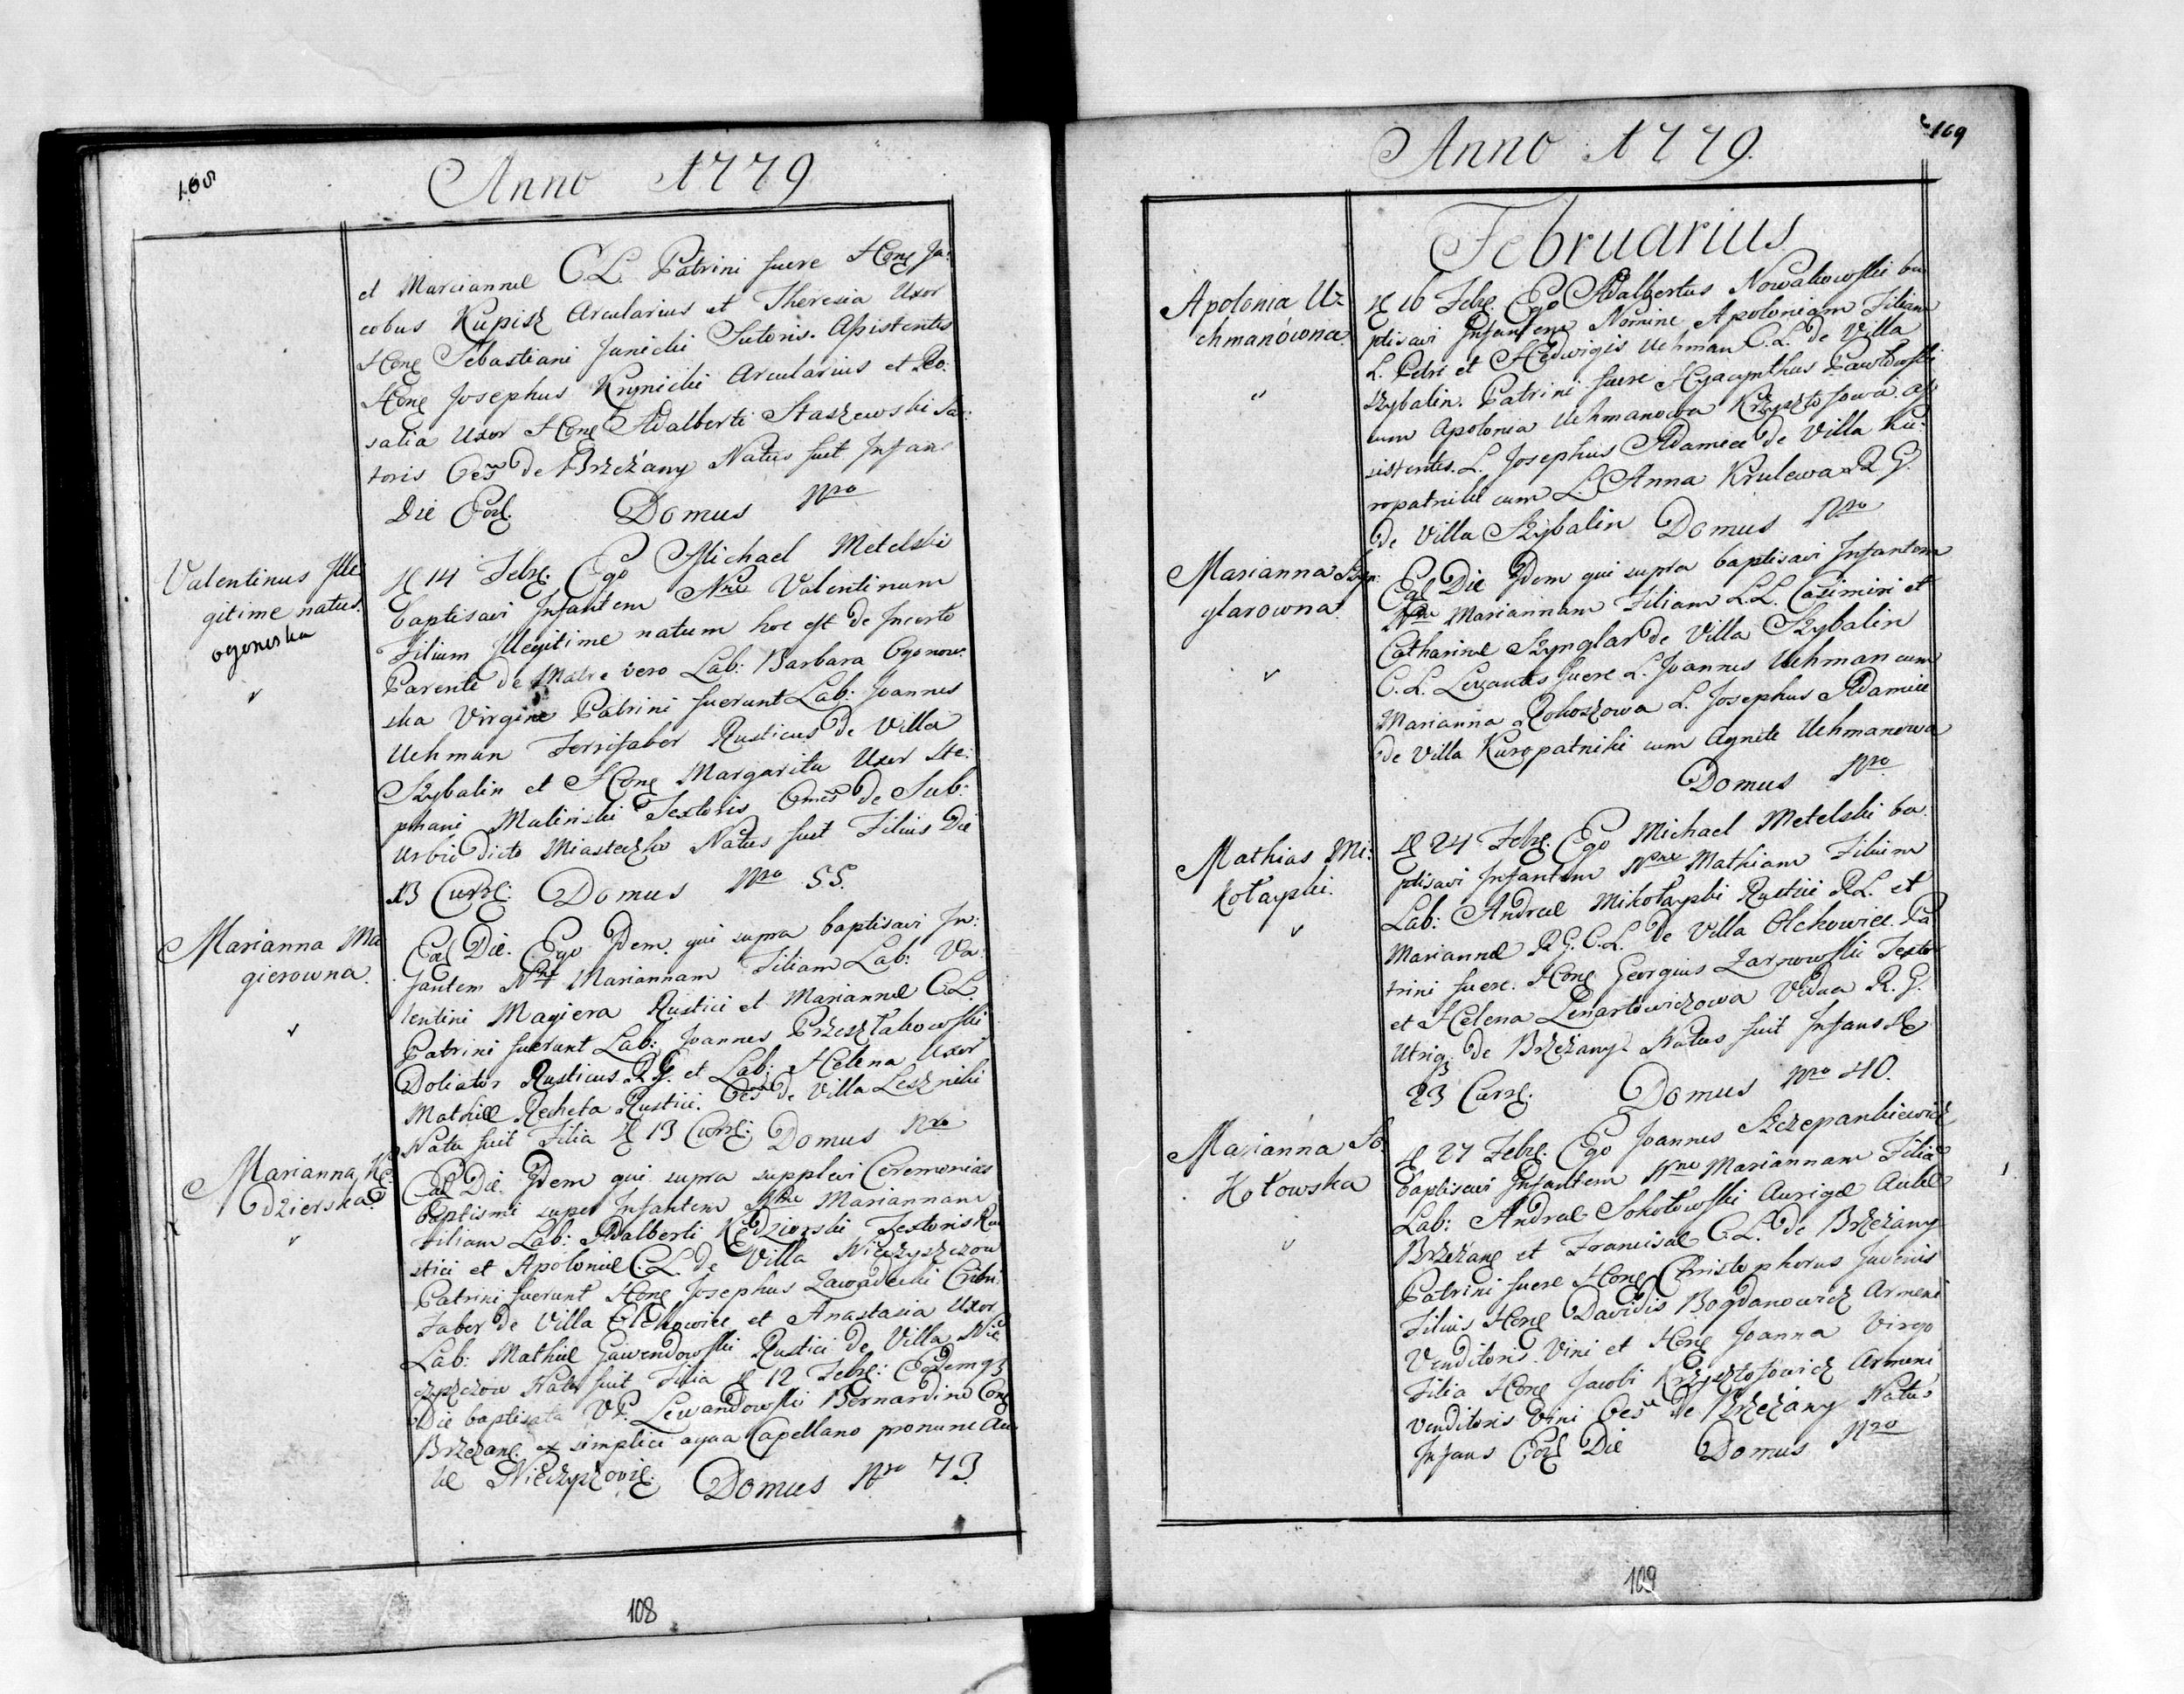 108
Anno 1779
et Mariannæ C.L. Patrini fuere Hone Ja:
cobus Kupisz Arcularius et Theresia Uxor
Hone Sebastiani Janicki Sutoris. Assistentes
Hone Josephus Krynicki Arcularius et Ro:
salia Uxor Hone Adalberti Staszewski Su:
toris Oes de Brzeżany Natus fuit Infans
Die Eod. Domus Nro
Valentinus Ille
gitime natus.
ogonoska
D 14 Febr. Ego Michael Metelski
baptisavi Infantem Nne Valentinum
Filium Illegitime natum hoc est de Incerto
Parente de Matre vero Lab: Barbara Ogonow:
ska Virgine Patrini fuerunt Lab: Joannes
Uchman Ferrifaber Rusticus de Villa
Szybalin et Hone Margarita Uxor Ste:
phani Malinski Textoris Omes de Sub:
urbio dicto Miasteczko Natus fuit Filius Die
13 Curre: Domus Nro 55.
Marianna Ma
gierowna.
Ead Die. Ego Idem qui supra baptisavi In:
fantem Nne Mariannam Filiam Lab: Va:
lentini Magiera Rustici et Mariannæ C.L.
Patrini fuerunt Lab: Joannes Przeszlakowski
Doliator Rusticus R.G. et Lab: Helena Uxor
Mathiæ Recheta Rustici. Oes de Villa Leszniki
Nata fuit Filia D 13 Curre: Domus Nro
Marianna Kę:
dzierska
Ead Die. Idem qui supra supplevi Ceremonias
baptismi super Infantem Nne Mariannam
Filiam Lab: Adalberti Kędzierski Textoris Ru
stici et Apoloniæ C.L. de Villa Nieszyszczow
Patrini fuerunt Hone Josephus Zawadecki Cribri
Faber de Villa Olchowiec et Anastasia Uxor
Lab: Mathiæ Gawendowski Rustici de Villa Nie
szyszczow Nata fuit Filia D 12 Febr: Eodemq
Die baptisata VP. Lewandowski Bernardino Con
Brzezan. ex simplici aqua Capellano pronunc Au
læ Domus Nro 73.
108
109
Anno 1779.
Februarius
Apolonia U:
chmanówna
D 16 Febr. Ego Adalbertus Nowakowski ba
ptisavi Infantem Nomine Apoloniam Filiam
L. Petri et Hedwigis Uchman C.L. de Villa
Szybalin. Patrini fuere Hyacynthus Pawłowski
cum Apolonia Uchmanowa Krzysztofowa. As
sistentes. L. Josephus Adamiec de Villa Ku:
ropatniki cum L. Anna Krulewa R.G.
de Villa Szybalin Domus Nro
Marianna Szyn:
glarowna.
Ead Die Idem qui supra baptisavi Infantem
Nne Mariannam Filiam L.L. Casimiri et
Catharinæ Szynglar de Villa Szybalin
C.L. Levantes fuere L. Joannes Uchman cum
Marianna Rokoszowa L. Josephus Adamiec
de Villa Kuropatniki cum Agnete Uchmanowa
Domus Nro
Mathias Mi:
kołayski.
D 24 Febr. Ego Michael Metelski ba:
ptisavi Infantem Nne Mathiam Filium
Lab: Andreæ Mikołayski Rustici R.L. et
Mariannæ R.G. C.L. de Villa Olchowiec. Pa
trini fuere. Hone Georgius Zarnowski Textor
et Helena Lenartowiczowa Vidua R.G.
Utriq de Brzeżany Natus fuit Infans D
23 Curre. Domus Nro 40.
Marianna So
kołowska
D 27 Febr. Ego Joannes Szczepankiewicz
baptisavi Infantem Nne Mariannam Filia
Lab: Andreæ Sokołowski Aurigæ Aulæ
Brzeżane et Franciscæ C.L. de Brzeżany
Patrini fuere Hone Christophorus Juvenis
Filius Hone Davidis Bogdanowicz Armeni
Venditoris Vini et Hone Joanna Virgo
Filia Hone Jacobi Krzysztofowicz Armeni
venditoris Vini Oes de Brzeżany Natus
Infans Eod Die Domus Nro
109